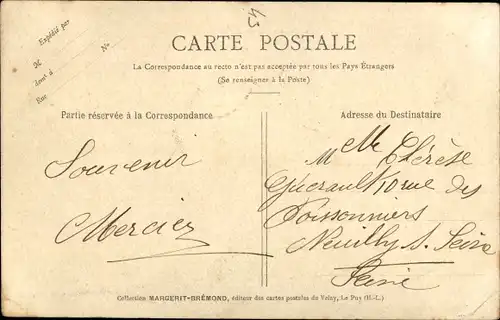 43
Expédié par
M
demt à
Rue
No
CARTE POSTALE
La Correspondance au recto n'est pas acceptée par tous les Pays Étrangers
(Se renseigner à la Poste)
Partie réservée à la Correspondance
Souvenir
Mercier
Adresse du Destinataire
Melle Thérèse
Guérault 10 rue des
Poissonniers
Neuilly S. Seine
Seine
Collection MARGERIT-BRÉMOND, éditeur des cartes postales du Velay, Le Puy (H.-L.)